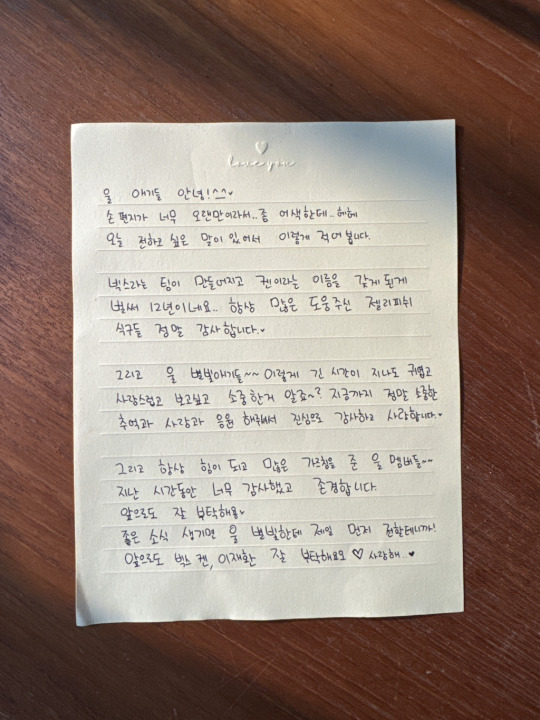 love you
울 애기들 안녕!^^♥
손 편지가 너무 오랜만이라서.. 좀 어색한데.. 헤헤
오늘 전하고 싶은 말이 있어서 이렇게 적어 봅니다.
빅스라는 팀이 만들어지고 켄이라는 이름을 갖게 된게
벌써 12년이네요.. 항상 많은 도움주신 젤리피쉬
식구들 정말 감사합니다.♥
그리고 울 별빛애기들~~ 이렇게 긴 시간이 지나도 귀엽고
사랑스럽고 보고싶고 소중한거 알죠~? 지금까지 정말 소중한
추억과 사랑과 응원 해줘서 진심으로 감사하고 사랑합니다.♥
그리고 항상 힘이 되고 많은 가르침을 준 울 멤버들~~
지난 시간동안 너무 감사했고 존경합니다.
앞으로도 잘 부탁해용♥
좋은 소식 생기면 울 별빛한테 제일 먼저 전할테니까!
앞으로도 빅스 켄, 이재환 잘 부탁해요오 ♡ 사랑해..♥